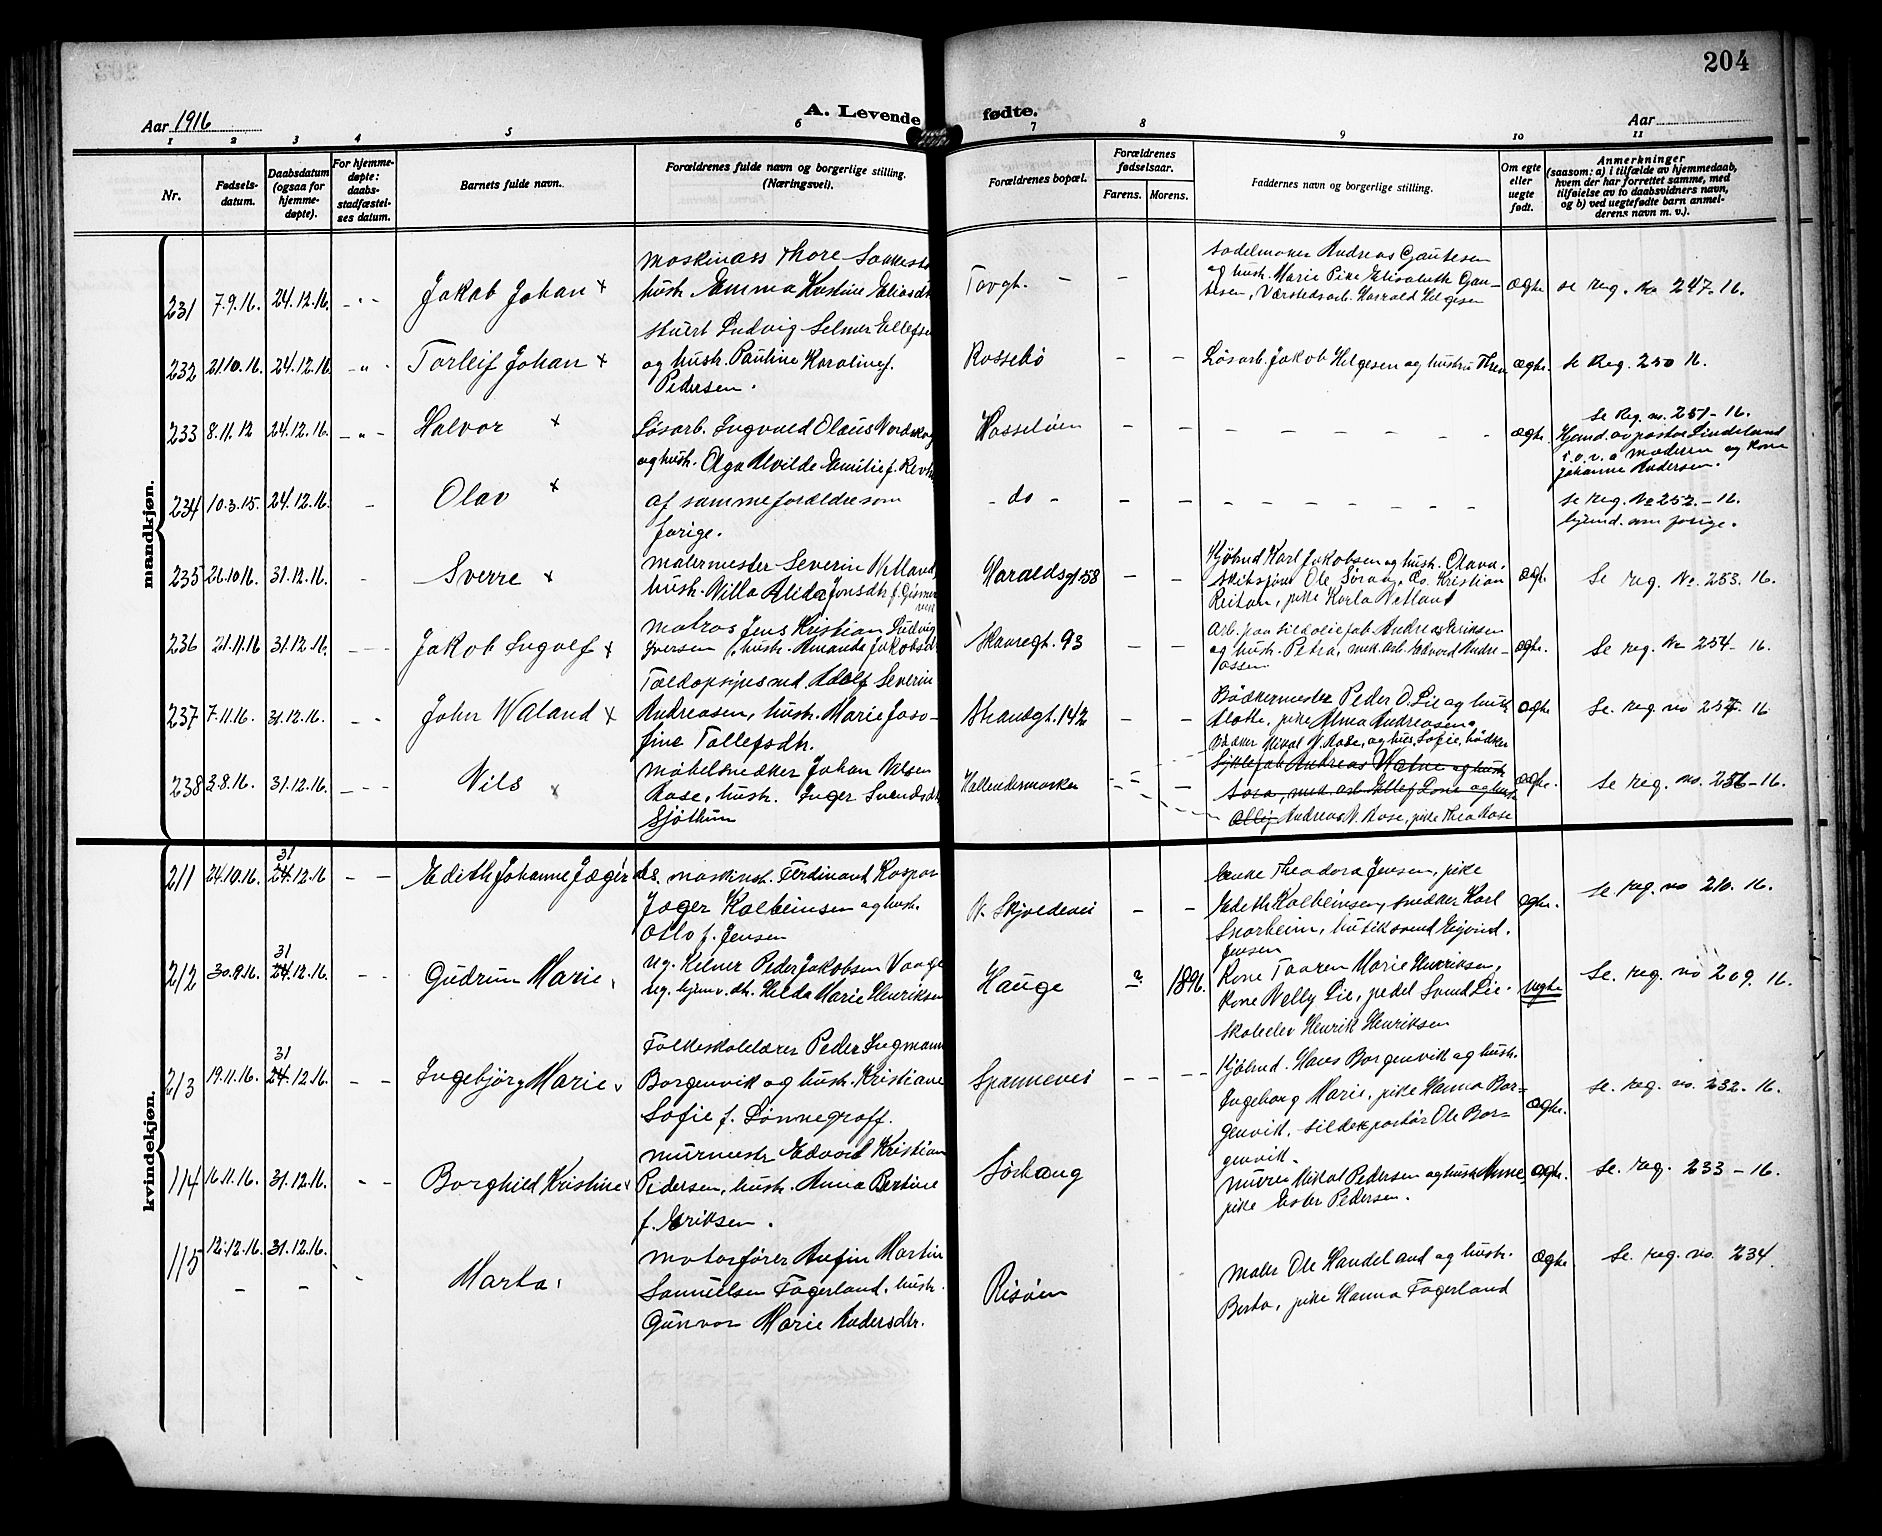 204
Aar 1916
A. Levende fødte.
Aar
1 2 3 4 5 6 7 8 9 10 11
Nr.
Fødsels-
datum.
Daabsdatum
(ogsaa for
hjemme-
døpte).
For hjemme-
døpte:
daabs-
stadfæstel-
ses datum.
Barnets fulde navn.
Forældrenes fulde navn og borgerlige stilling.
(Næringsvei).
Forældrenes bopæl.
Forældrenes
fødselsaar.
Farens. Morens.
Faddernes navn og borgerlige stilling.
Om egte
eller
uegte
født.
Anmerkninger
(saasom: a) i tilfælde av hjemmedaab,
hvem der har forrettet samme, med
tilføielse av to daabsvidners navn,
og b) ved uegtefødte barn anmel-
derens navn m. v.).
mandkjøn.
231 7.9.16. 24.12.16. Jakob Johan x
maskinass Thore
hust. Emma Kristine Eliasdt
Torvgt. - -
sadelmaker Andreas Gautesen
og hust. Marie Pike Elisabeth Gau-
tesen, Værkstedsarb. Harald Helgesen
ægte se reg. No 247-16.
232 21.10.16. 24.12.16 Torleif Johan x
stuert Ludvig Selmer Ellefsen
og hust. Pauline Karoline f.
Pedersen.
Rossebø - -
Løsarb. Jakob Helgesen og hustru
ægte. se Reg. 250 16.
233 8.11.12 24.12.16. Halvor x
Løsarb. Ingvald Olaus
og hust. Olga Alvilde Emilie f.
Hasseløen - -
ægte.
Se Reg. no. 251-16.
Hjemd. av pastor Lindeland
i. o. v. a moderen og Kone
Johanne Andersen.
234 10.3.15. 24.12.16. - Olav x
af samme forældre som
forige.
- do - - -
se reg. No 252.-16.
hjemd. som forige.
235 26.10.16. 31.12.16. - Sverre x
malermester Severin Vetland,
hust. Villa Alida Jonsdtr f.
Haraldsgt. 58 - -
Kjøbmd Karl Jakobsen og hust. Olava.
Skibsfører Ole Do. Kristian
Reitan, pike Karla Vetland
ægt. Se reg. No. 253.16.
236 21.11.16 31.12.16. Jakob Ingolf x
Matros Jens Kristian Ludvig
Iversen, hust. Amanda Jakobsdt
Skaaregt. 93 - -
Arb. paa sildoliefab Andreas Eriksen
og hust. Petra, mek. arb. Edvard Andre-
assen
ægte. Se reg. No 254-16.
237 7.11.16. 31.12.16. John Waland x
Toldopsynsmd. Adolf Severin
Andreasen, hust. Marie Jose-
fine Tollefsdtr.
Strandgt. 142 - -
Bødkermester Peder O. Lie og hust
pike Alma Andreasen.
ægte Se. reg. no 16
238 3.8.16. 31.12.16. - - - Nils x
Møbelsnedker Johan Nilsen
Rase, hust. Inger Svendsdt
Sjøthun
Hallendermarken
Bødker Mikal N. Rase, og hus. Sofie, bødker
Andreas N. Rase, pike Thea Rase
ægte. Se reg. no. 16.
kvindekjøn.
211 24.10.16. 31 24.12.16 - - Edith Johanne Jæger
ds. maskinist. Ferdinand Kaspar
Jæger Kolbeinsen og hust.
Oslo f. Jensen
N. Skjoldevei - -
Enke Theodora Jensen, pike
Edith Kolbeinsen, snedker Karl
Snorheim, butiksmd Eyvind.
Jensen
ægte. Se. reg. no 210. 16.
212 30.9.16. 31 24.12.16. - - Gudrun Marie
Ug. Kelner Peder Jakobsen Vaage
ug. hjemv. dtr. Hilda Marie Henriksen
Hauge ? 1896.
Kone Taaren Marie Henriksen,
Kone Nelly Lie, pedel Svend Lie.
Skoleelev Henrik Henriksen
uegte Se. reg. no 209. 16.
213 19.11.16. 31 24.12.16. - - Ingebjørg Marie
Folkeskolelærer Peder Ingmann
Borgenvik og hust. Kristiane
Sofie f. Lønnegraff.
Spannevei - -
Kjøbmd. Hans Borgenvik og hust.
Ingeborg Marie, pike Hanna Bor-
genvik, sildeksportør Ole Bor-
genvik.
ægte. se. reg. no. 232-16.
114 16.11.16. 31.12.16. - - Borghild Kristine
murmestr Edvard Kristian
Pedersen, hust. Anna Bertine
f. Eriksen.
Sørhaug
Murer Mikal Pedersen og hust. Anne,
pike Ester Pedersen.
ægte. Se. reg. 233-16.
115 12.12.16. 31.12.16. - - Marta
motorfører Anfin Martin
Samuelsen Fagerland, hust.
Gunvor Marie Andersdtr.
Risøen
Maler Ole Handeland og hustr.
Berta, pike Hanna Fagerland
ægte Se. reg. no. 234.